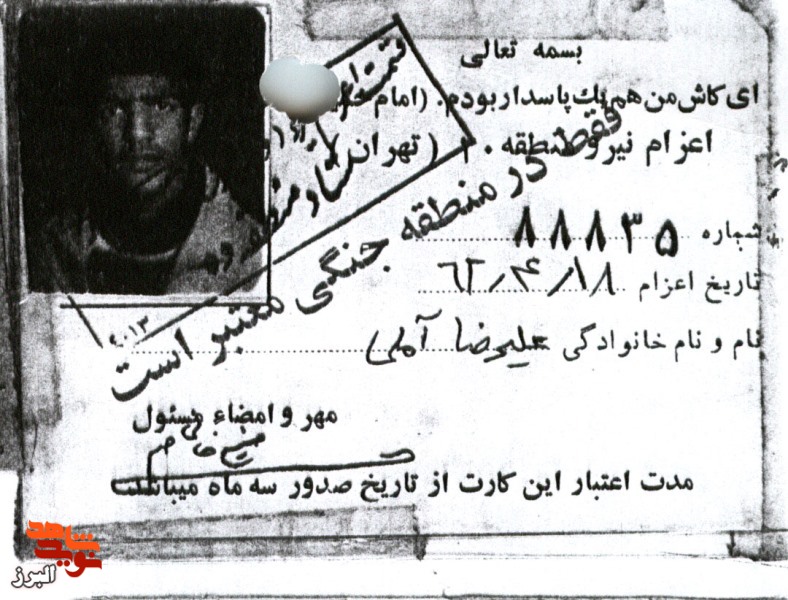 بسمه تعالی
ای کاش من هم یك پاسدار بودم. (امام
اعزام نیرو منطقه ۱۰ (تهران)
شماره ۸۸۸۳۵
تاریخ اعزام ۶۲/۴/۱۸
نام و نام خانوادگی علیرضا آملی
فقط در منطقه جنگی معتبر است
مهر و امضاء مسئول
مدت اعتبار این کارت از تاریخ صدور سه ماه میباشد
شاهد
نوید
البرز